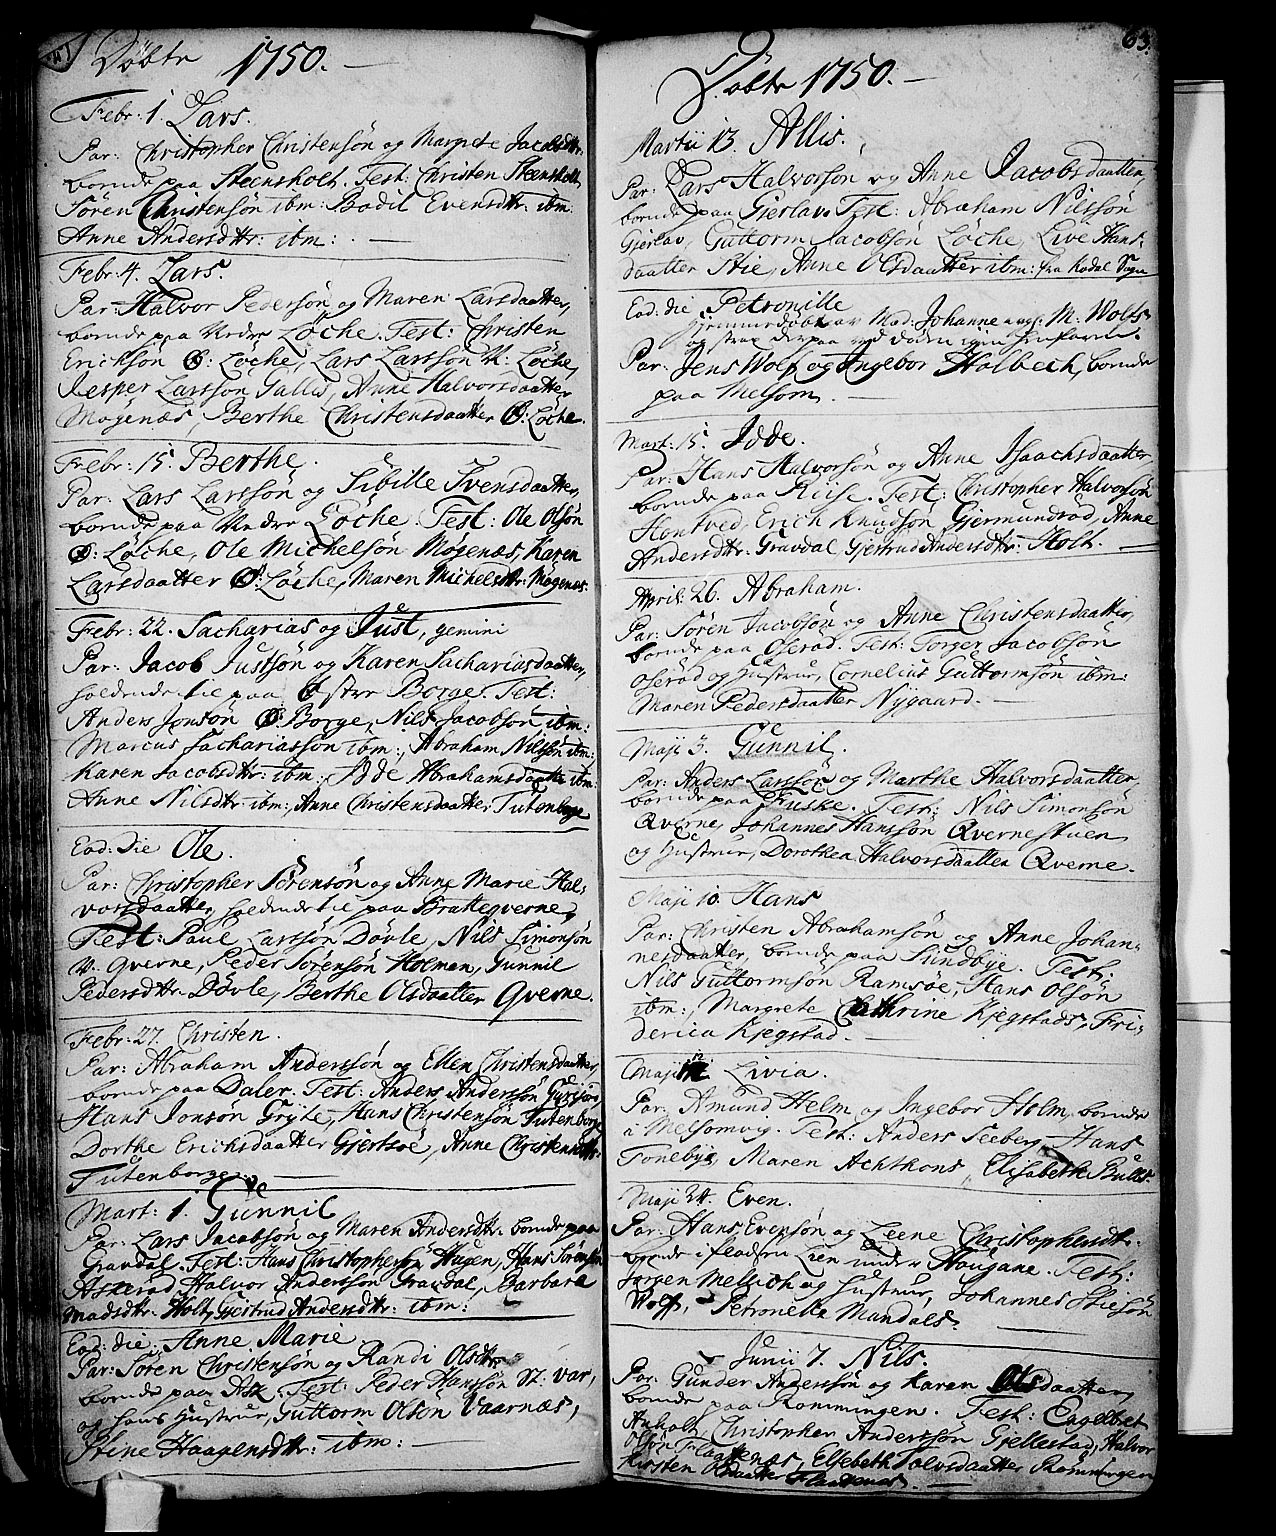 Döbte 1750.
Febr: 1. Lars.
Par: Christopher Christensön og Margrete Jacobsdtr:
boende paa Steensholt. Test: Christen Steensholt
Sören Christensön ibm: Bodil Evensdtr: ibm:
Anne Andersdtr: ibm:
Febr: 4. Lars.
Par: Halvor Pedersön og Maren Larsdaatter,
boende paa Nedre Löche. Test: Christen
Erichsön Ö: Löche, Lars Larssön N: Löche,
Jesper Larssön Gallis, Anne Halvorsdaatter
Mögenæs, Berthe Christensdaatter Ö: Löche.
Febr: 15. Berthe.
Par: Lars Larssön og Sibille Ivensdaatter,
boende paa Nedre Löche. Test: Ole Olsön
Ö: Löche, Ole Michelsön Mögenæs, Karen
Larsdaatter Ö: Löche, Maren Michelsdtr: Mögenæs.
Febr: 22. Sacharias og Just, gemini
Par: Jacob Justsön og Karen Sachariasdaatter,
holdende til paa Östre Borge. Test:
Anders Jonsön Ö: Borge, Nils Jacobsön ibm:
Marcus Sachariassön ibm:, Abraham Nilsön ibm:
Karen Jacobsdtr: ibm:, Idde Abrahamsdaatter ibm:
Anne Nilsdtr: ibm:, Anne Christensdaatter Tutenborge
Eod: die Ole.
Par: Christopher Sörensön og Anne Marie Hal-
vorsdaatter, holdende til paa Bratteqverne,
Test: Paul Larssön Dövle, Nils Simonsön
N. Qverne, Peder Sörensön Holmen, Gunnil
Pedersdtr: Dövle, Berthe Olsdaatter Qverne.
Febr: 27. Christen.
Par: Abraham Anderssön og Ellen Christensdaatter,
boende paa Daler. Test: Anders Anderssön
Hans Jonsön Gryte, Hans Christensön Tutenborg
Dorthe Erichsdaatter Gjertsöe, Anne Christensdtr:
Tutenborge.
Mart: 1. Gunnil
Par: Lars Jacobsön og Maren Andersdtr: boende paa
Gravdal. Test: Hans Christophersön Haugen, Hans Sörensön
Askerød Halvor Anderssön Gravdal, Barbara
Madsdtr: Holt, Gjertrud Andersdtr: ibm:
Eod: die, Anne Marie
Par: Sören Christensön og Randi Olsdtr:
boende paa Ask. Test: Peder Hanssön St. Var,
og hans Hustrue, Guttorm Olsön Vaarnæs,
Stine Haagensdtr: ibm:
63.
Döbte 1750.
Martii 13. Allis.
Par: Lars Halvorsön og Anne Jacobsdaatter,
boende paa Gjerlav Test: Abraham Nilssön
Gjerlav, Guttorm Jacobsön Löche, Live Hans-
daatter Stie, Anne Olsdaatter ibm: fra Kodal Sogn
Eod: die Petronille
hjemmedöbt av Mad: Johanne M: Wolfs
og strax derpaa ved döden
Par: Jens Wolf og Ingebor Holbech, boende
paa Melsom.
Mart: 15. Idde.
Par: Hans Halvorsön og Anne Isaachsdaatter,
boende paa Riise. Test: Christopher Halvorsön
Hontved, Erich Knudsön Gjermundrød, Anne
Andersdtr: Gravdal, Gjertrud Andersdtr: Holt.
April: 26. Abraham.
Par: Sören Jacobsön og Anne Christensdaatter,
boende paa Oserød. Test: Torger Jacobsön
Oserød og Hustrue, Cornelius Guttormsön ibm:
Maren Pedersdaatter Nygaard.
Maji 3. Gunnil.
Par: Anders Larssön og Marthe Halvorsdaatter,
boende paa Fuske. Test: Nils Simonsön
Qverne, Johannes Hanssön Qvernestuen
og Hustrue, Dorothea Halvorsdaatter Qverne.
Maji 10. Hans
Par: Christen Abrahamsön og Anne Johan-
nesdaatter, boende paa Sundbye. Test:
Nils Guttormsön Ramsøe, Hans Olsön
ibm:, Margrete Cathrine Kjegstads, Fri-
derica Kjegstad.
Maji Livia.
Par: Amund Helm og Ingebor Holm, boende
i Melsomvig. Test: Anders Seeberg Hans
Tonebye, Maren Achthons, Elisabeth Bulls.
Maji 24. Even.
Par: Hans Evensön og Leene Christophersdtr:
boende i Pladsen Lien under Haugane. Test:
Jörgen Melsich og Hustrue, Johannes Stiesön
Wolf, Petroneke Mandals.
Junii 7. Nils.
Par: Gunder Anderssön og Karen Olsdaatter,
boende paa Rommingen. Test: Engelbret
Anholt, Christopher Anderssön Gjellestad, Halvor
Olsön Flaatenæs, Elsebeth Tolvsdaatter Rommingen
Kirsten Olsdaatter Flaatenæs.